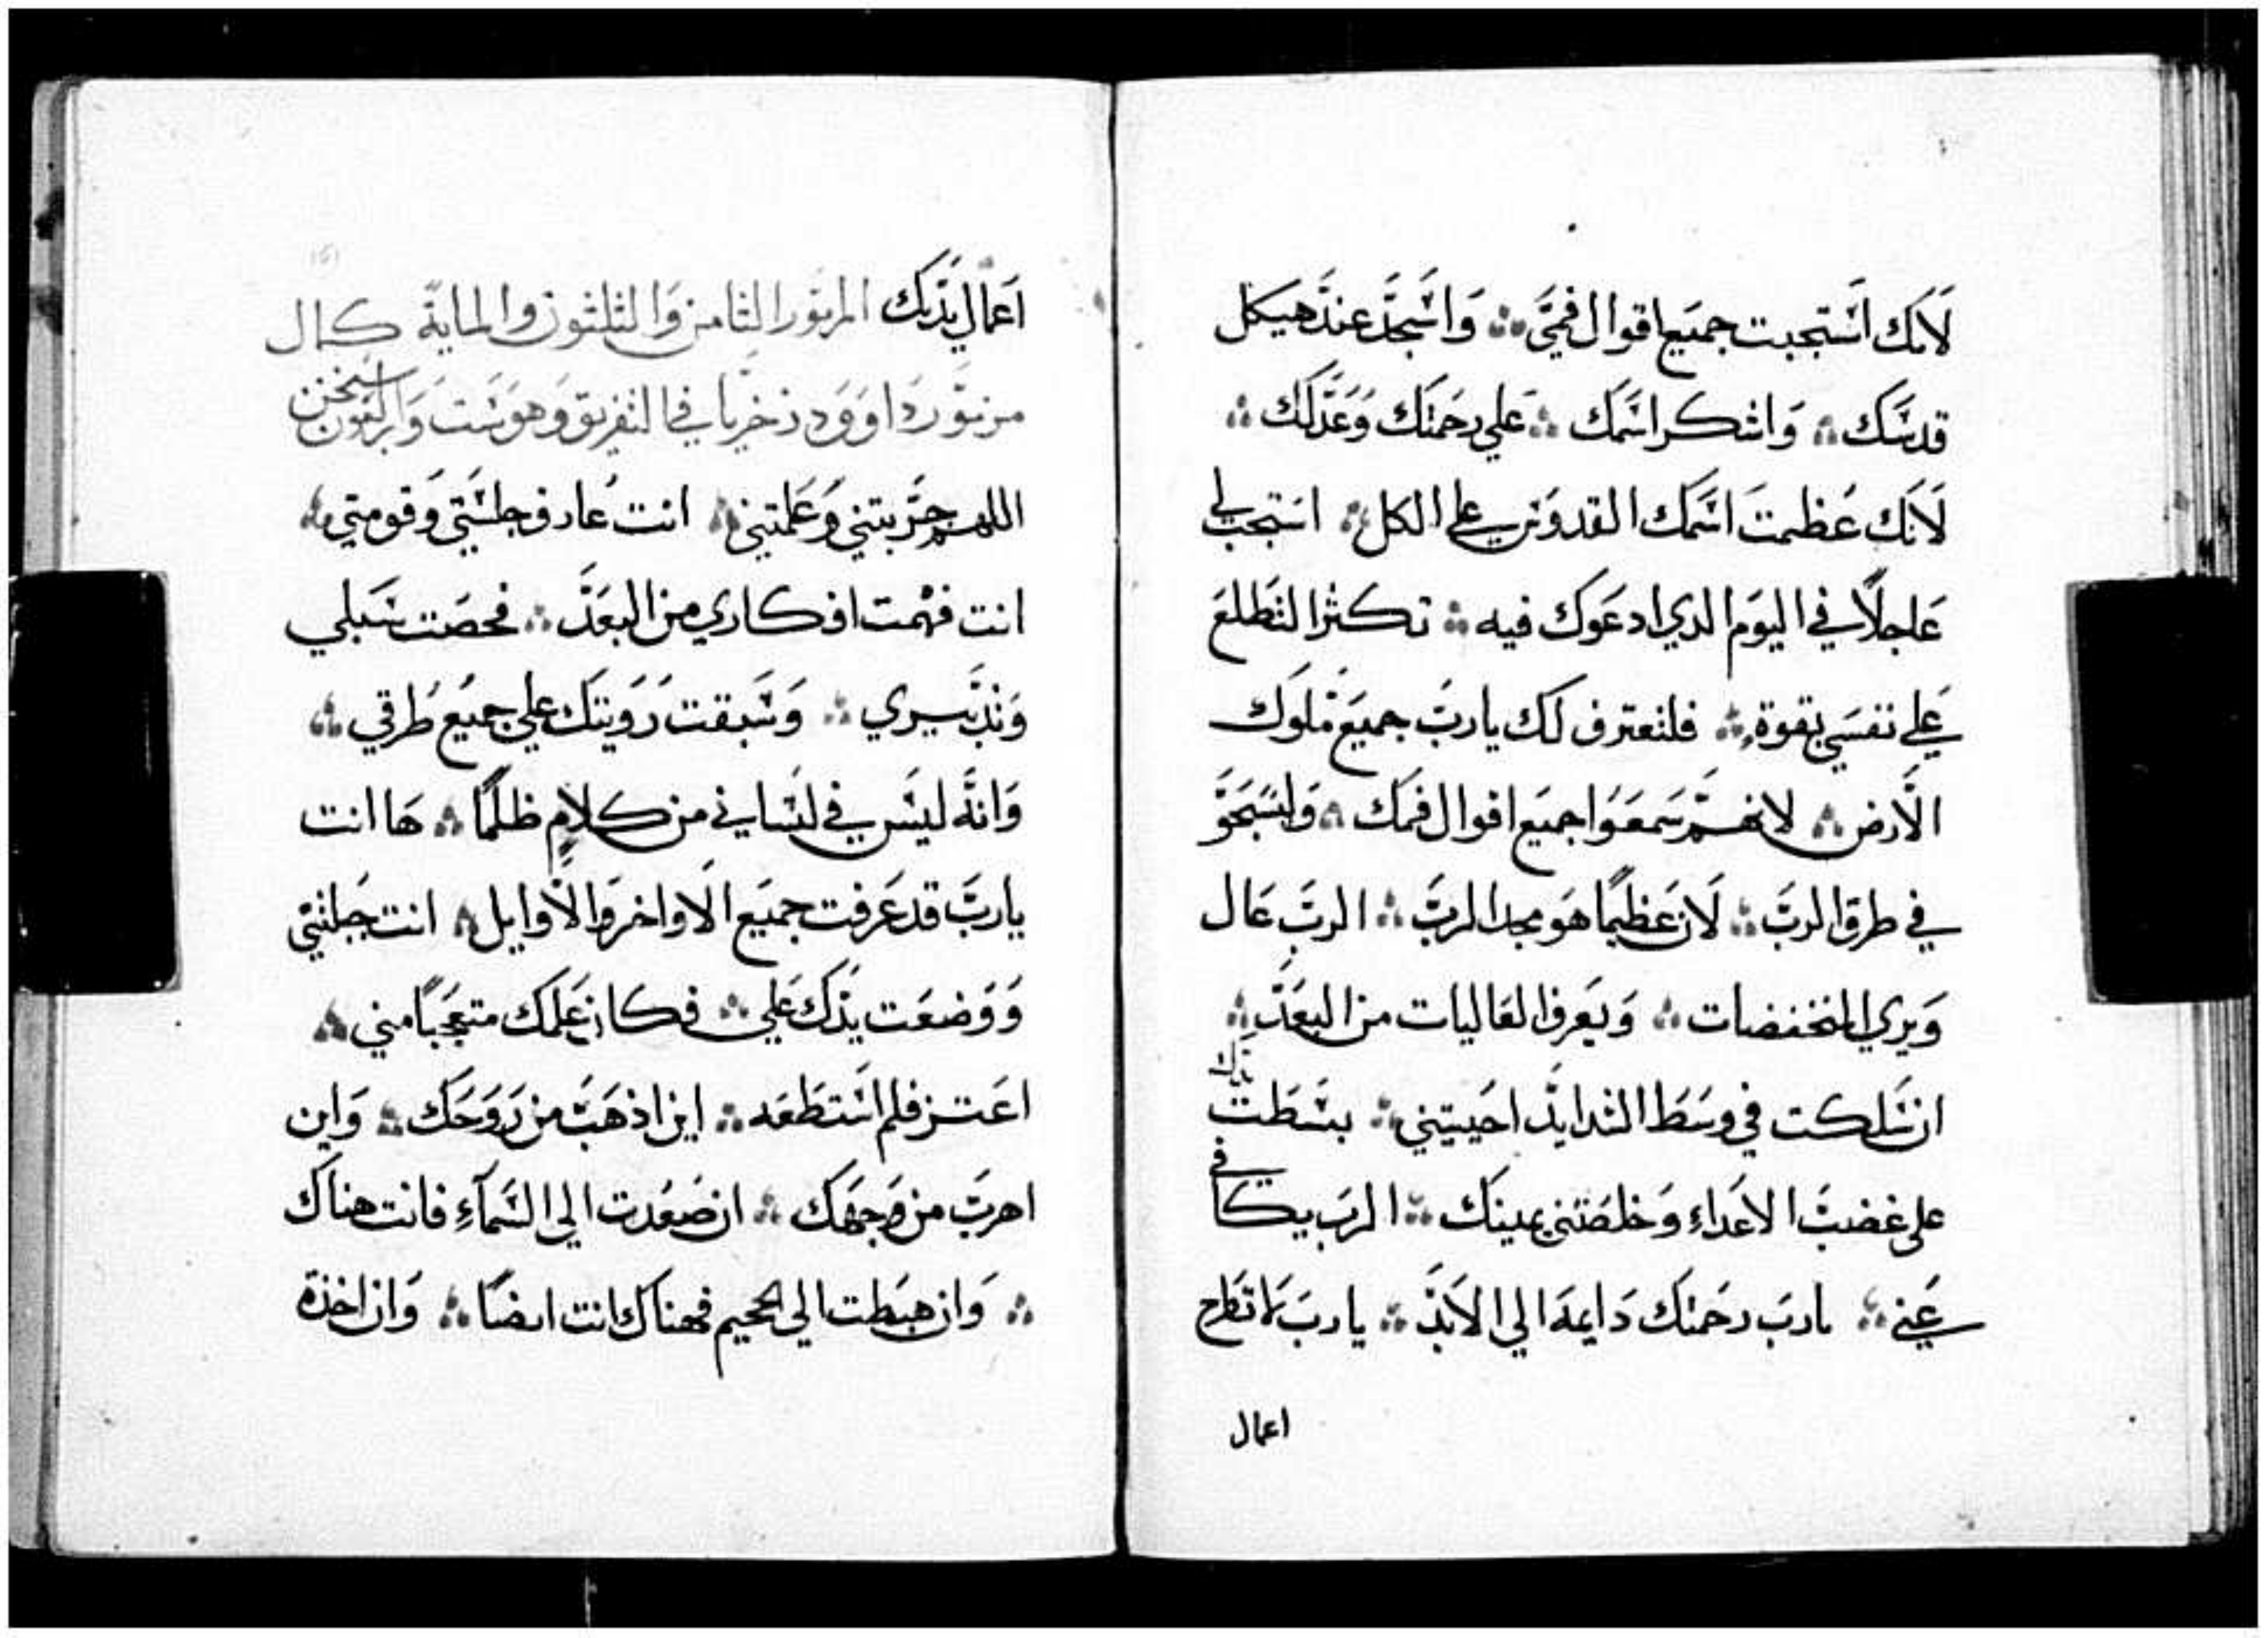 لانك استجبت جميع اقوال فمي ∴ واسجد عند هيكل
قدسك ∴ واشكر اسمك ∴ علي رحمتك وعدلك ∴
لانك عظمت اسمك القدوس علي الكل ∴ استجب لي
عاجلاً في اليوم الدي ادعوك فيه ∴ تكثر التطلع
علي نفسي بقوة ∴ فلنعترف لك يارب جميع ملوك
الارض ∴ لانهم سمعوا جميع اقوال فمك ∴ وليسبحو
في طرق الرب ∴ لان عظيماً هو مجد الرب ∴ الرب عال
ويري المنخفضات ∴ ويعرف العاليات من البعد ∴
ان سلكت في وسط الشدايد احييتني ∴ بسطت يدك
على غضب الاعداء وخلصتني يمينك ∴ الرب يكافي
عني ∴ يارب رحمتك دايمة الي الابد ∴ يارب لا تطرح
اعمال
اعمال يديك المزمور الثامن والثلثون والماية كمال
من داوود زخريا في التفريق وهو ست
اللهم جربتني وعلمتني ∴ انت عارف جلستي وقومتي ∴
انت فهمت افكاري من البعد ∴ فحصت سبلي
وتدبيري ∴ وسبقت رويتك علي جميع طرقي ∴
وانه ليس في لساني من كلامٍ ظلماً ∴ ها انت
يارب قد عرفت جميع الاواخر والاوايل ∴ انت جبلتني
ووضعت يدك علي ∴ فكان علمك متعجباً مني ∴
اعتز فلم استطعه ∴ اين اذهب من روحك ∴ واين
اهرب من وجهك ∴ ان صعدت الي السماءِ فانت هناك
∴ وان هبطت الي الجحيم فهناك انت ايضاً ∴ وان اخذة